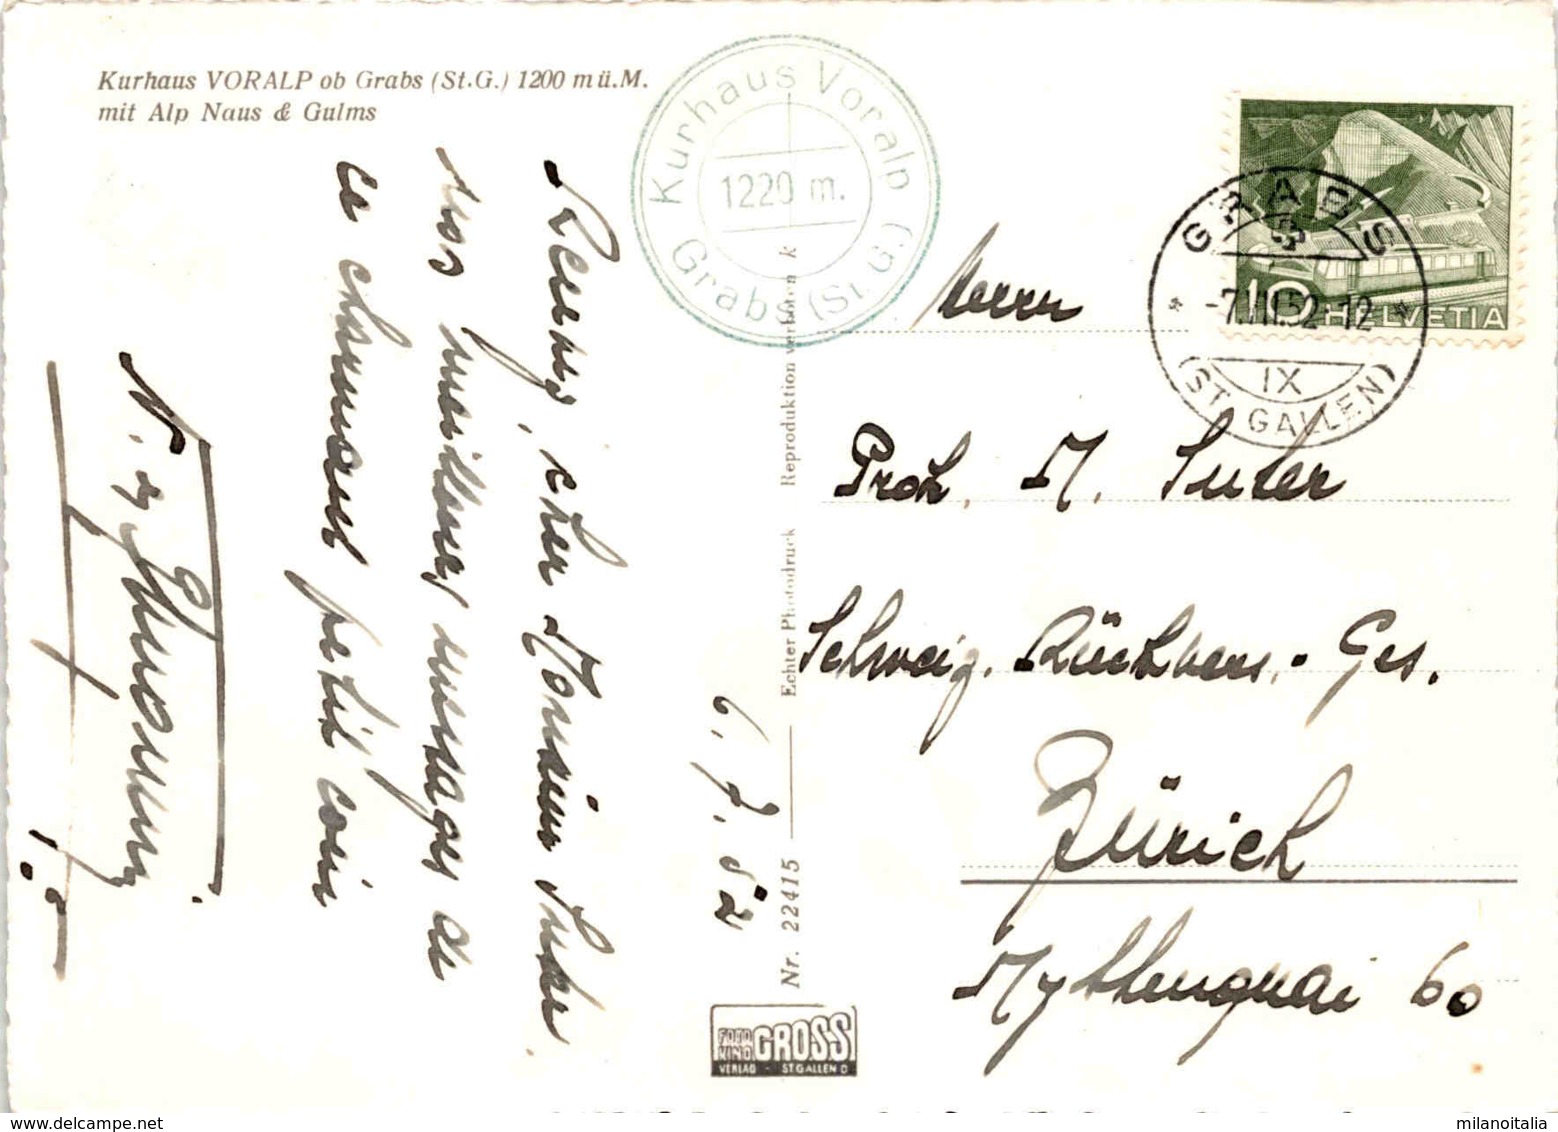 Kurhaus VORALP ob Grabs (St.G.) 1200 m ü.M.
mit Alp Naus & Gulms
Kurhaus Voralp
1220 m.
Grabs (St. G.)
GRABS
-7.VII.52-12
IX
(ST. GALLEN)
10 HELVETIA
Recevez, cher Monsieur Suter
nos meilleurs messages de
ce charmant petit coin
6.7.52
Herrn
Prok. M. Suter
Schweiz. Rückvers.-Ges.
Zürich
Mythenquai 60
Reproduktion verboten k
Echter Photodruck
Nr. 22415
FOTO KINO GROSS
VERLAG - ST GALLEN O
milanoitalia